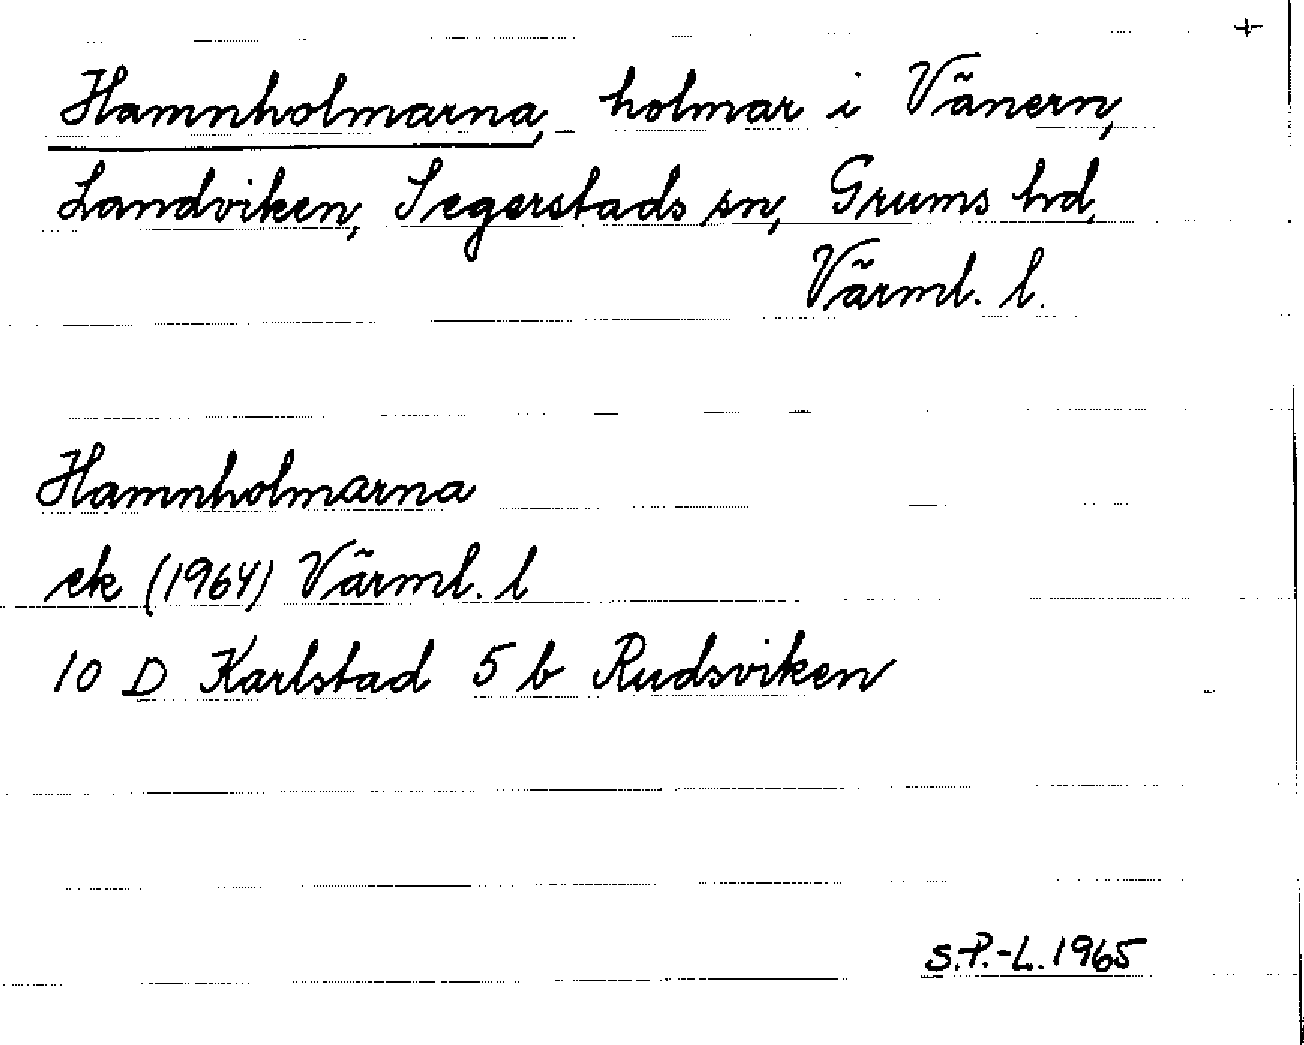 +
Hamnholmarna, holmar i Vänern,
Landviken, Segerstads sn, Grums hd,
Värml. l.
Hamnholmarna
ek (1964) Värml. l
10 D Karlstad 5 b Rudsviken
S.P.-L. 1965